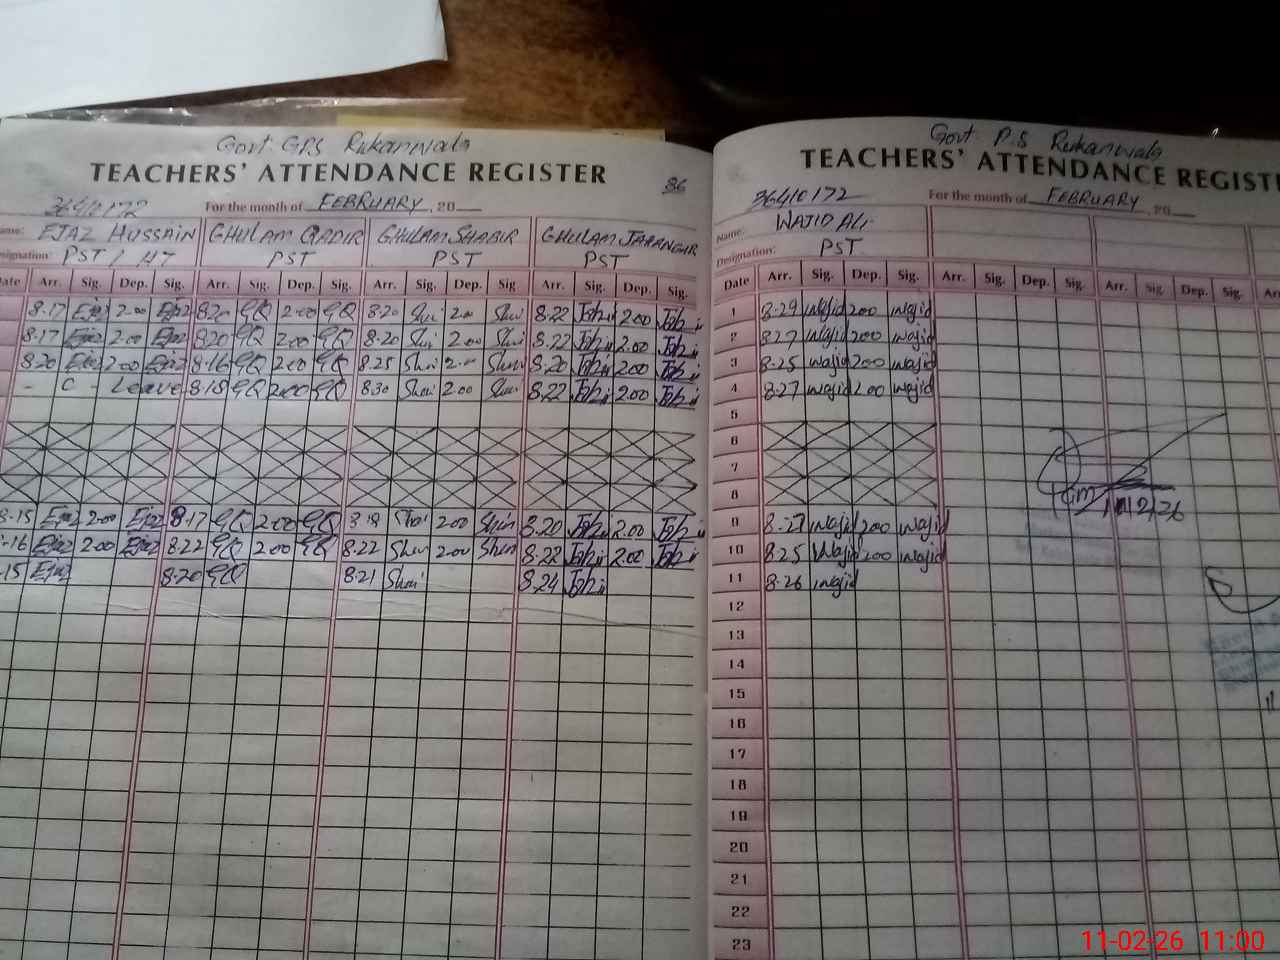 Govt GPS Rukanwala
TEACHERS' ATTENDANCE REGISTER
86
36410172 For the month of FEBRUARY, 20
EJAZ HUSSAIN GHULAM QADIR GHULAM SHABIR GHULAM JAHANGIR
PST / HT PST PST PST
Date Arr. Sig. Dep. Sig. Arr. Sig. Dep. Sig. Arr. Sig. Dep. Sig. Arr. Sig. Dep. Sig.
8.17 Ejaz 2.00 Ejaz 8.20 GQ 2.00 GQ 8.20 2.00 8.22 2.00
8.17 Ejaz 2.00 Ejaz 8.20 GQ 2.00 GQ 8.20 2.00 8.22 2.00
8.20 Ejaz 2.00 Ejaz 8.16 GQ 2.00 GQ 8.25 2.00 8.20 2.00
- C - Leave 8.18 GQ 2.00 GQ 8.30 2.00 8.22 2.00
8.15 Ejaz 2.00 Ejaz 8.17 GQ 2.00 GQ 8.18 2.00 8.20 2.00
8.16 Ejaz 2.00 Ejaz 8.22 GQ 2.00 GQ 8.22 2.00 8.22 2.00
8.15 Ejaz 8.20 GQ 8.21 8.24
Govt P.S Rukanwala
TEACHERS' ATTENDANCE
36410172 For the month of FEBRUARY, 20
Name: WAJID ALI
Designation: PST
Date Arr. Sig. Dep. Sig. Arr. Sig. Dep. Sig. Arr. Sig. Dep. Sig. Arr.
1 8.29 wajid 2.00 wajid
2 8.27 wajid 2.00 wajid
3 8.25 wajid 2.00 wajid
4 8.27 wajid 2.00 wajid
5
6
7
8
9 8.27 wajid 2.00 wajid
10 8.25 wajid 2.00 wajid
11 8.26 wajid
12
13
14
15
16
17
18
19
20
21
22
23
11-02-26 11:00